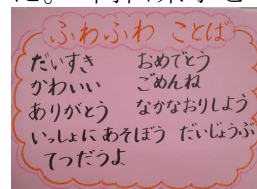 ふわふわ ことば
だいすき おめでとう
かわいい ごめんね
ありがとう なかなおりしよう
いっしょに あそぼう だいじょうぶ
てつだうよ